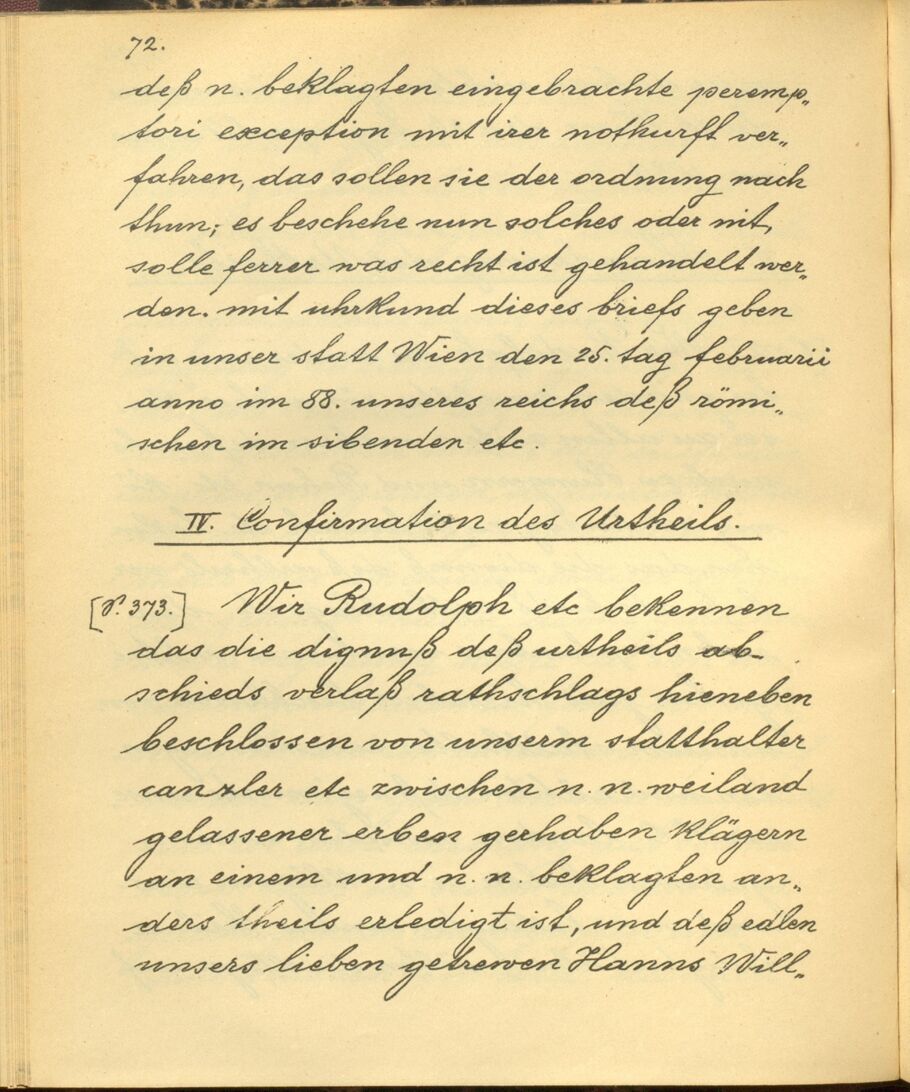 72.
deß n. beklagten eingebrachte peremp„
tori exception mit irer nothurft ver„
fahren, das sollen sie der ordnung nach
thun; es beschehe nun solches oder nit,
solle ferrer was recht ist gehandelt wer„
den. mit uhrkund dieses briefs geben
in unser statt Wien den 25. tag februarii
anno im 88. unseres reichs deß römi„
schen im sibenden etc.
IV. Confirmation des Urtheils.
[P. 373.] Wir Rudolph etc bekennen
das die dignuß deß urtheils ab-
schieds verlaß rathschlags hieneben
beschlossen von unserm statthalter
canzler etc zwischen n. n. weiland
gelassener erben gerhaben klägern
an einem und n. n. beklagten an„
ders theils erledigt ist, und deß edlen
unsers lieben getrewen Hanns Will„